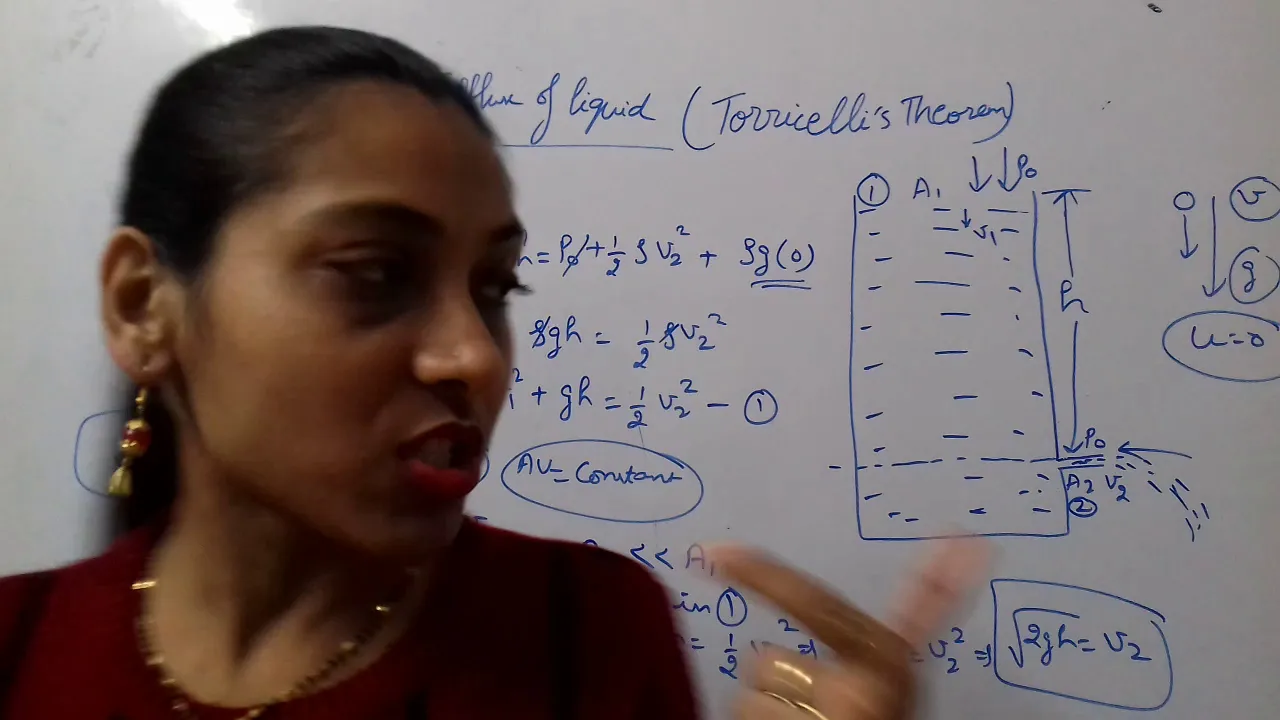 of liquid (Torricelli's Theorem)
h = P₀ + 1/2 ρv₂² + ρg(0)
ρgh = 1/2 ρv₂²
² + gh = 1/2 v₂² – ①
AV = Constant
<< A₁
in ①
= 1/2 v₂² ⇒
= v₂² ⇒ √2gh = v₂
① A₁ P₀
v₁
h
P₀
A₂ v₂
②
v
g
u=0